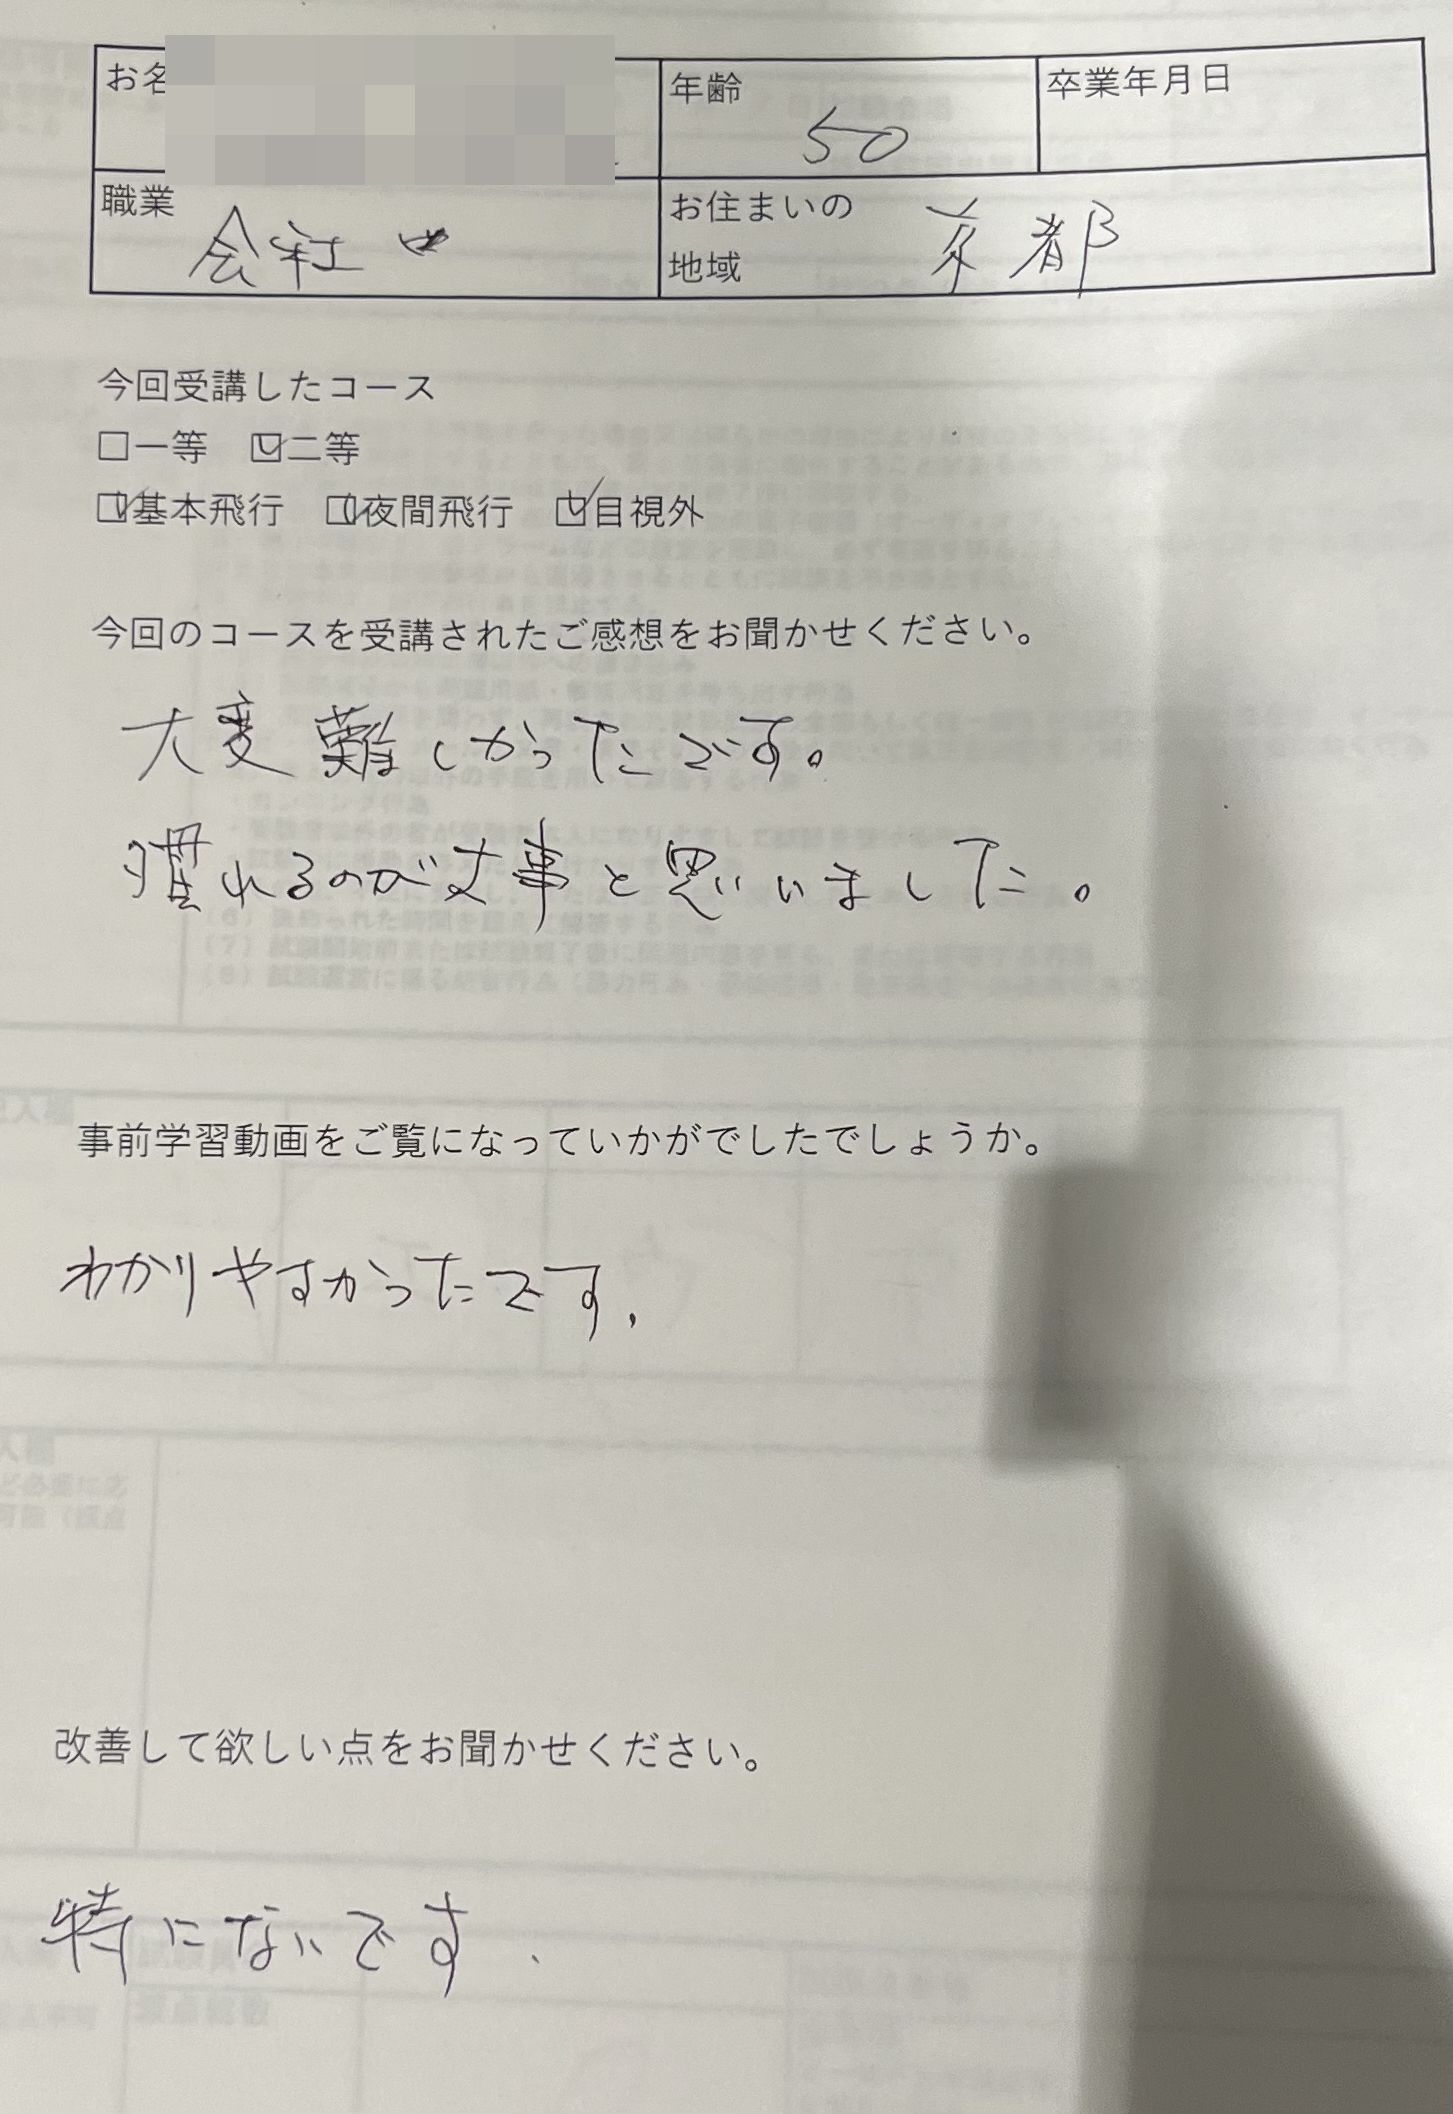 お名
年齢
50
卒業年月日
職業
会社
お住まいの
地域
京都
今回受講したコース
□一等 ☑二等
☑基本飛行 ☑夜間飛行 ☑目視外
今回のコースを受講されたご感想をお聞かせください。
大変難しかったです。
慣れるのが大事と思いました。
事前学習動画をご覧になっていかがでしたでしょうか。
わかりやすかったです.
改善して欲しい点をお聞かせください。
特にないです.